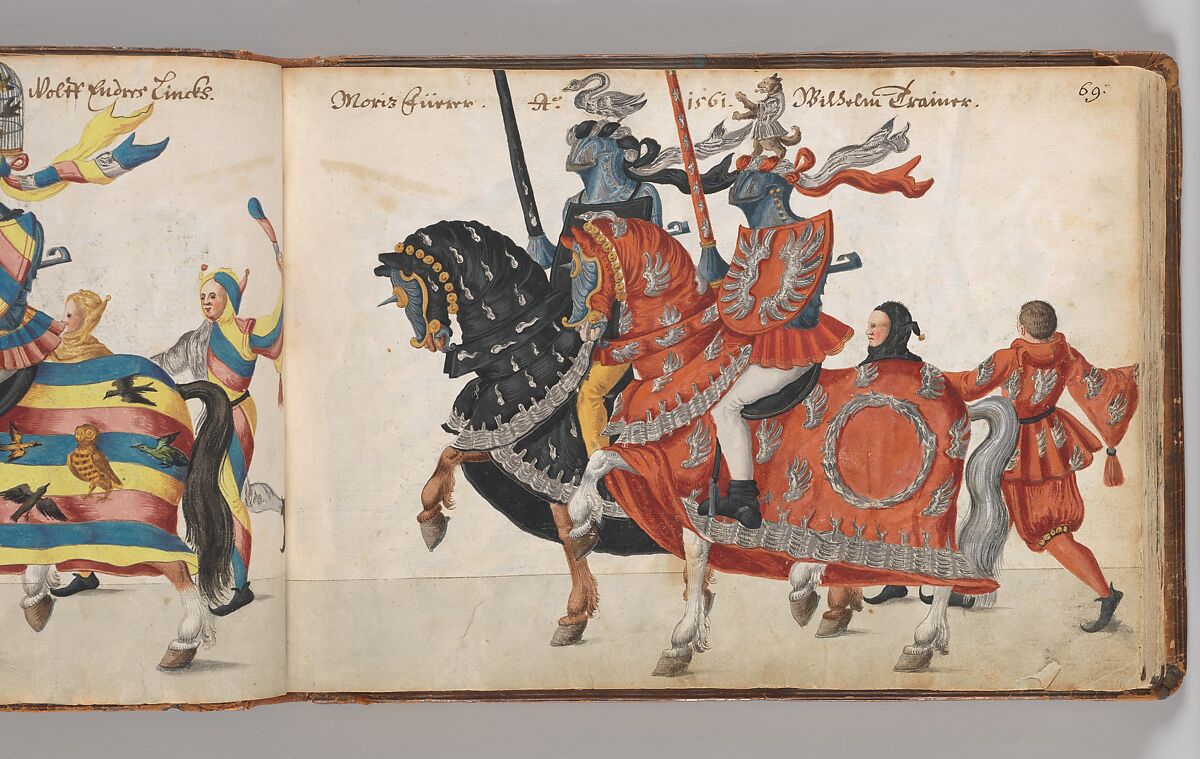 Wolff Endres Lincks.
Moriz Fürer. Aº. 1561. Wilhelm Trainer.
69.